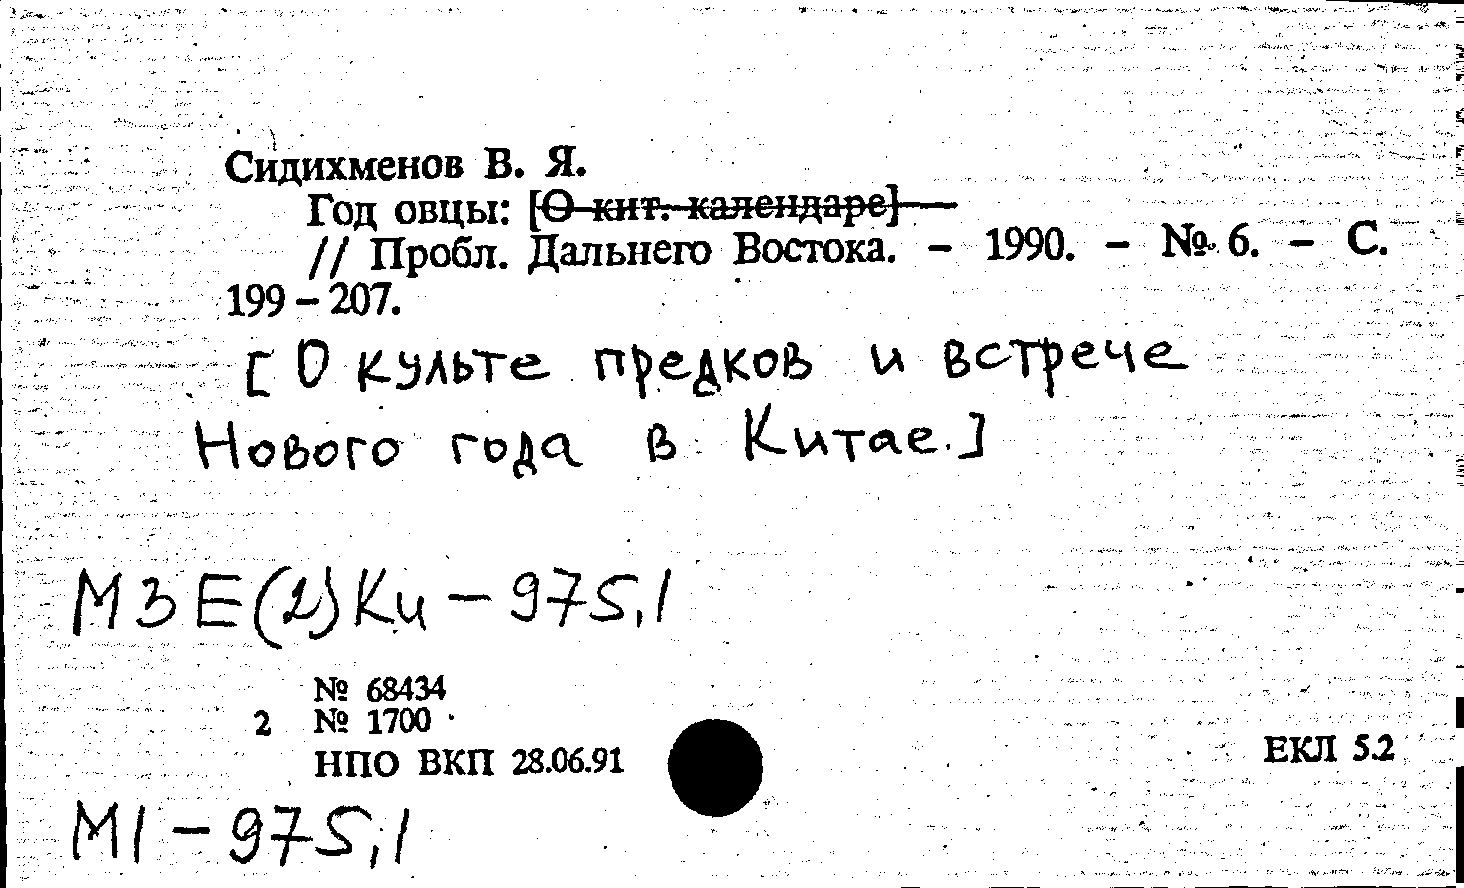 Сидихменов В. Я.
Год овцы: [О кит. календаре]
// Пробл. Дальнего Востока. – 1990. – № 6. – С.
199 – 207.
[О культе предков и встрече
Нового года в Китае.]
М3Е(2)Ки – 975,1
№ 68434
2 № 1700
НПО ВКП 28.06.91
ЕКЛ 5.2
М1 – 975,1